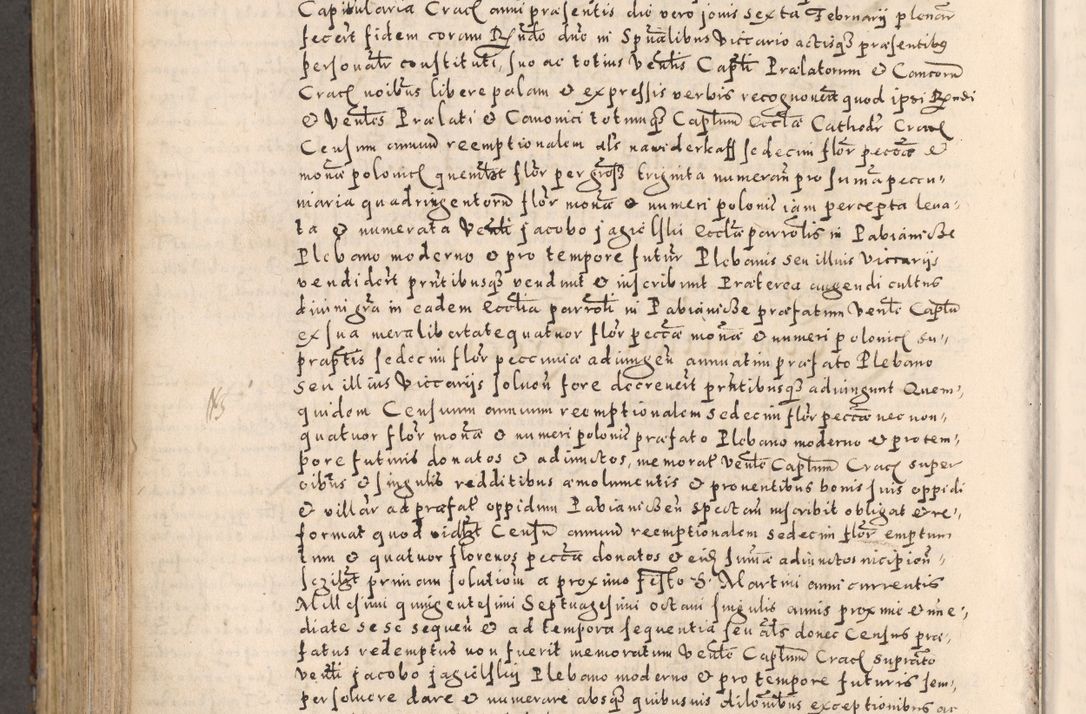 Capitularia Crac anni præsentis die vero jovis sexta Februarij plenar
fecert fidem coram Rndo dno in Spualibus Viccario actisq præsentibus
personalr constituti, suo ac totius Venlis Captli Prælatorum et Canonicorū
Crac noibus libere palam et expressis verbis recognoverunt quod ipsi Rndi
et Venles Prælati et Canonici totumq Captlum Ecclæ Cathedr Crac
Censum annuum reemptionalem als nawiderkaff sedecim flor pecoæ et
monæ polonicæ quemlbet flor per gross triginta numeran pro suma peccu-
niaria quadringentorū flor monæ et numeri polonic iam percepta leva-
ta et numerata Venli jacobo jagielskii Ecclæ parrolis in Pabianicze
Plebano moderno et pro tempore futur Plebanis seu illius Viccarijs
vendidert prntibusq vendunt et inscribunt Præterea augendi cultus
divini gra in eadem Ecclia parroli in Pabianicze præfatum Venle Captlu
ex sua mera libertate quatuor flor peccæ monæ et numeri polonic su-
praptis sedecim flor peccuniæ adiungen annuatim præfato Plebano
seu illius Viccarijs solven fore decreverit prntibusq adiungunt Quem-
quidem Censuum annuum reemptionalem sedecim flor peccæ nec non
quatuor flor monæ et numeri polonic præfato Plebano moderno et pro tem-
pore futuris donatos et adiunctos, memorat Venle Captlum Crac super
oibus et singulis redditibus æmolumentis et proventibus bonis suis oppidi
et villar ad præfat oppidum Pabianiczen spectan inscribit obligat et re-
format quod vidlzt Censu annuum reemptionalem sedecim flor emptum
tum et quatuor florenos peccæ donatos et eid sumæ adiunctos incipien
scilizt primam solutiom a proximo Festo S. Martini anni currentis
Millesimi quingentesimi Septuagesimi octavi singulis annis proxime et ime-
diate sese sequen et ad tempora sequentia seu als donec Census præ-
fatus redemptus non fuerit memoratum Venle Captlum Crac suprato
Venli jacobo jagielskij Plebano moderno et pro tempore futuris sem-
persolvere dare et numerare absq quibusvis dilonibus exceptionibus ac